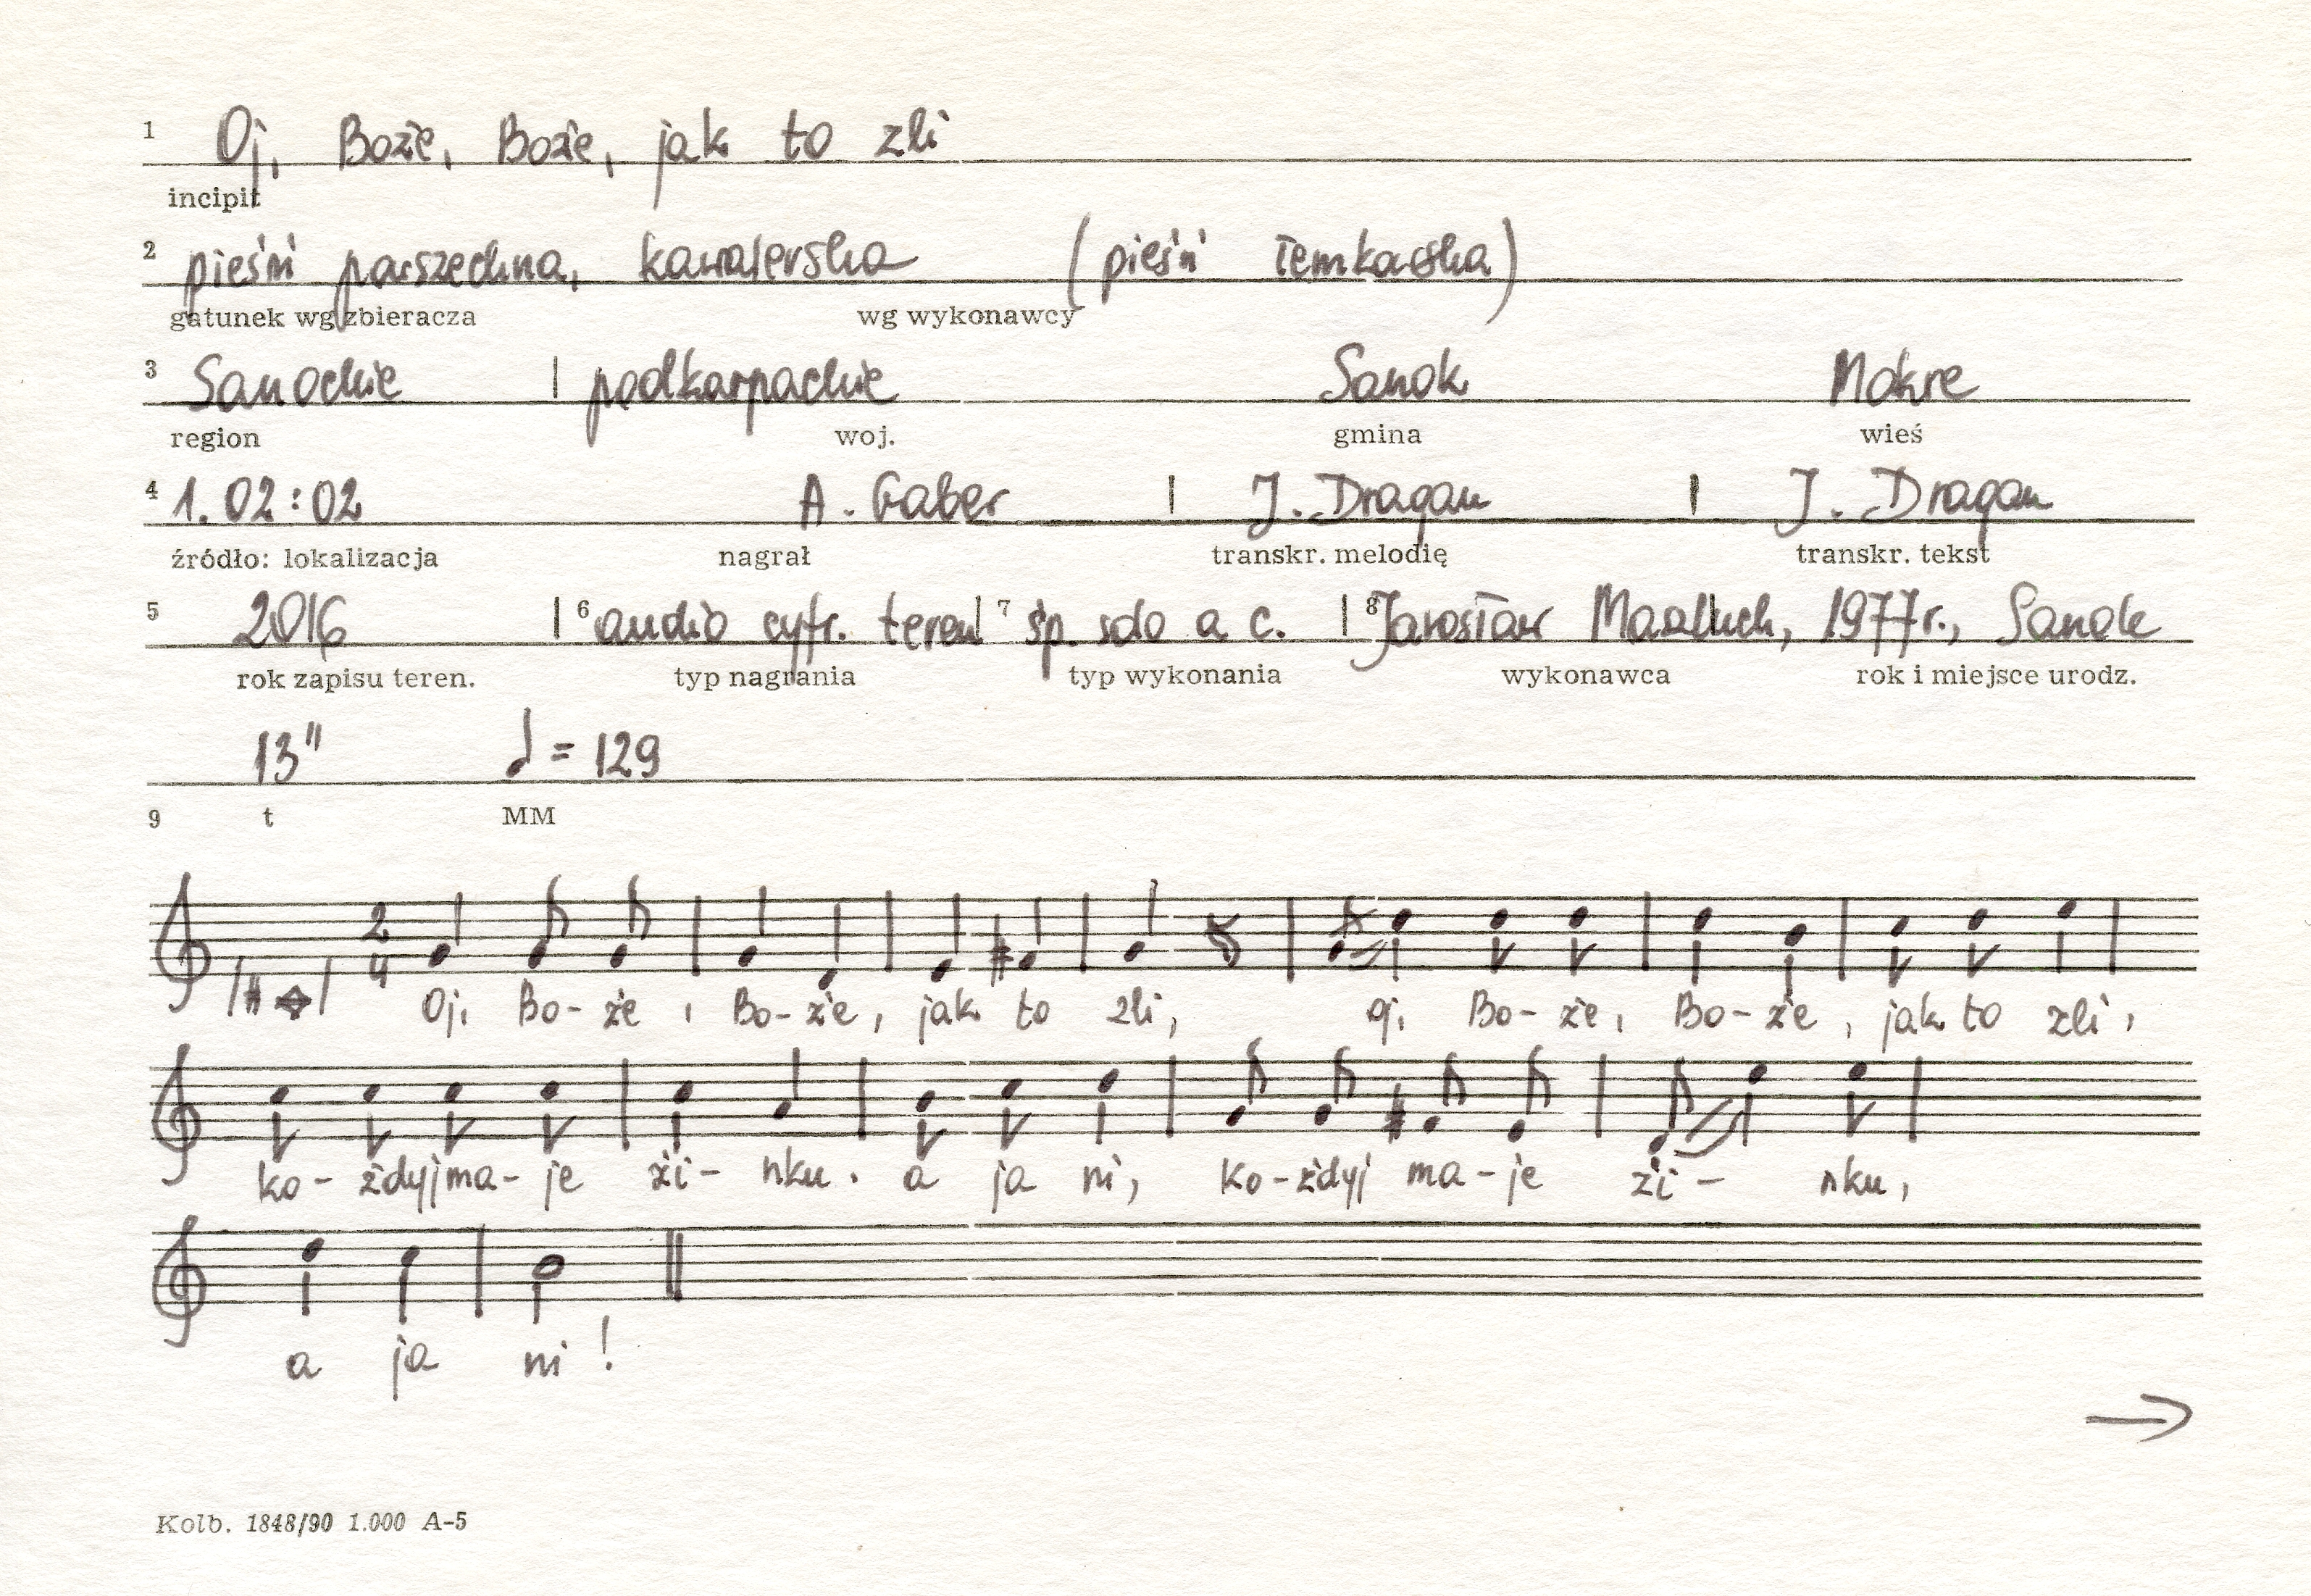 1 Oj, Boże, Boże, jak to zli
incipit
2 pieśń powszechna, kawalerska (pieśń łemkowska)
gatunek wg zbieracza wg wykonawcy
3 Sanockie | podkarpackie Sanok Mokre
region woj. gmina wieś
4 1. 02:02 A. Gaber | J. Dragan | J. Dragan
źródło: lokalizacja nagrał transkr. melodię transkr. tekst
5 2016 | 6 audio cyfr. teren | 7 śp. solo a c. | 8 Jarosław 1977r., Sanok
rok zapisu teren. typ nagrania typ wykonania wykonawca rok i miejsce urodz.
13" ♩ = 129
9 t MM
2/4
Oj, Bo- że, Bo- że, jak to zli, oj, Bo- że, Bo- że, jak to zli,
ko- żdyj ma- je ži- nku, a ja ni, ko- żdyj ma- je ži- nku,
a ja ni!
→
Kolb. 1848/90 1.000 A-5